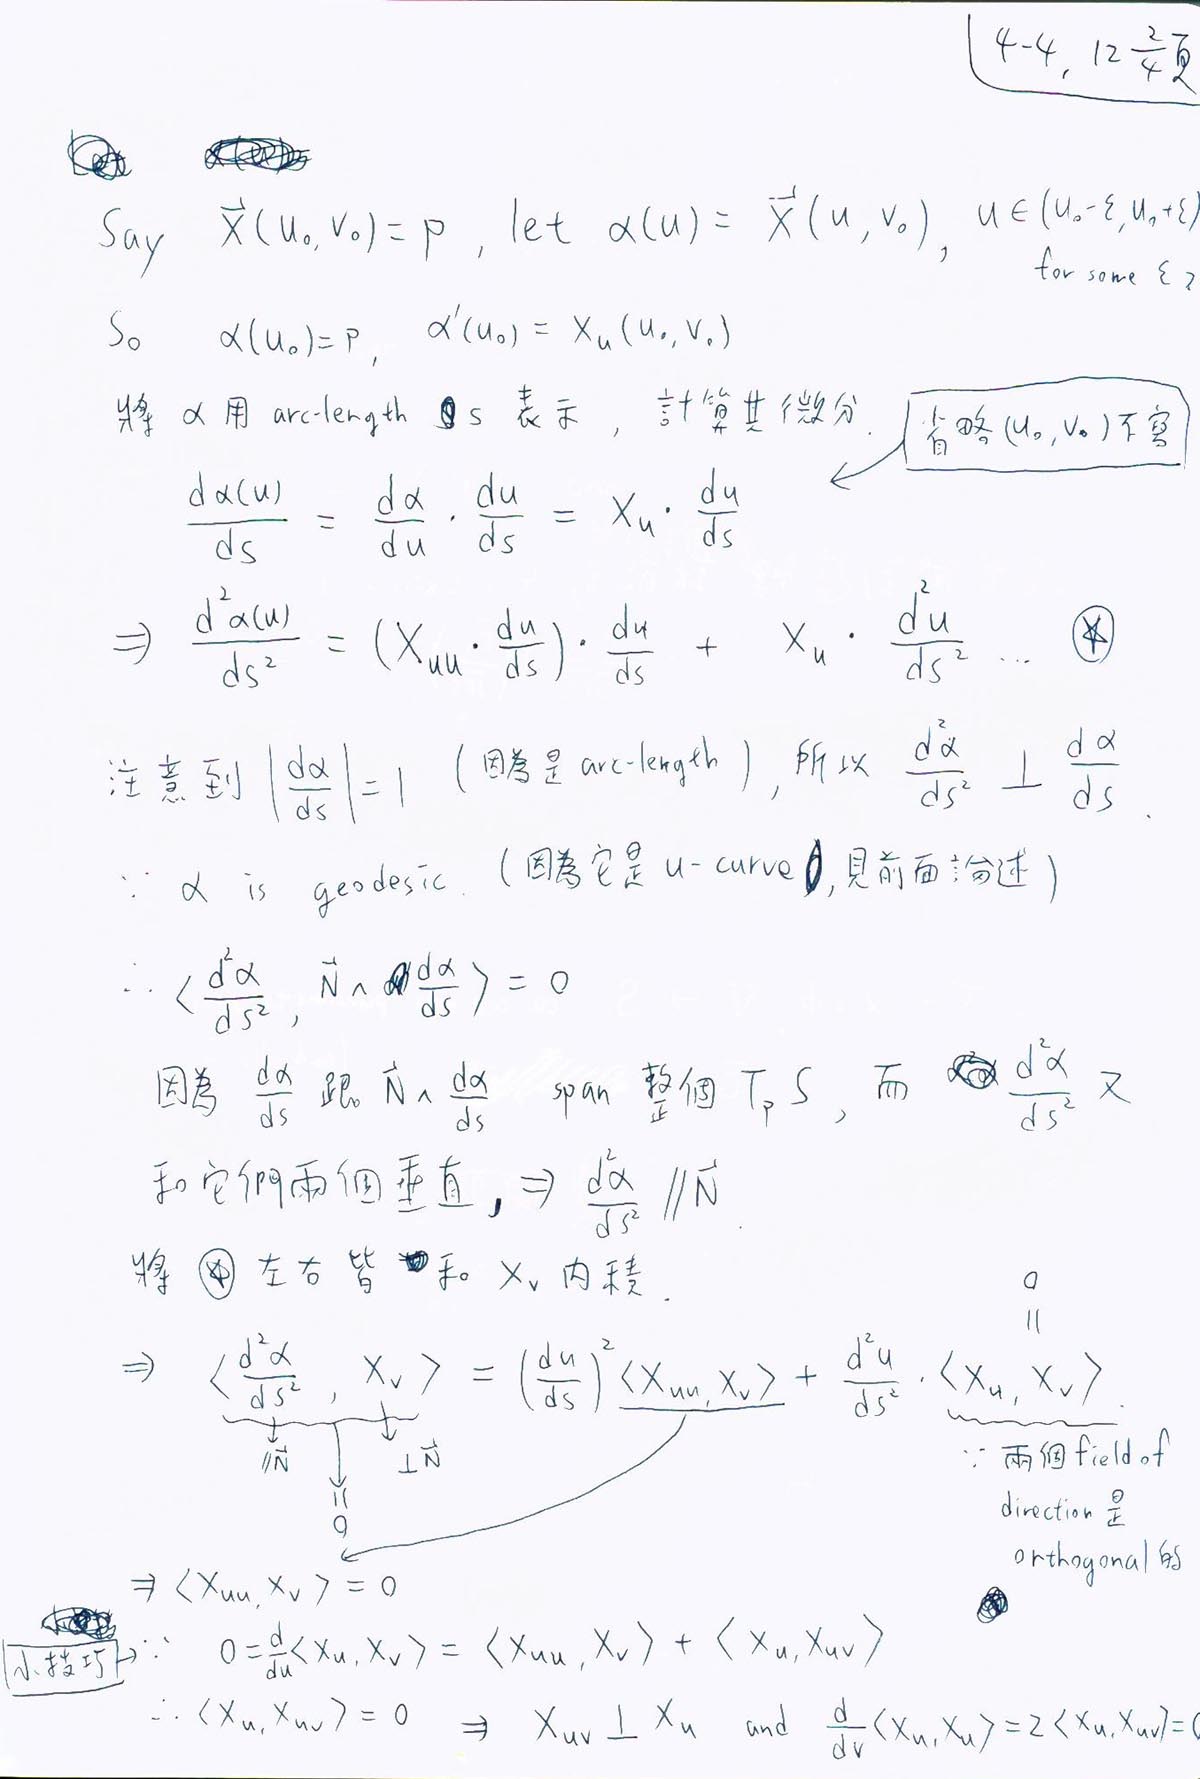 4-4, 12 2/4頁
Say X⃗(u₀, v₀) = p, let α(u) = X⃗(u, v₀), u ∈ (u₀-ε, u₀+ε)
for some ε >
So α(u₀) = p, α'(u₀) = Xᵤ(u₀, v₀)
將 α 用 arc-length s 表示, 計算其微分.
省略(u₀, v₀)不寫
dα(u)/ds = dα/du · du/ds = Xᵤ · du/ds
⇒ d²α(u)/ds² = (Xᵤᵤ · du/ds) · du/ds + Xᵤ · d²u/ds² ... ⍟
注意到 |dα/ds| = 1 (因為是 arc-length), 所以 d²α/ds² ⊥ dα/ds.
∵ α is geodesic. (因為它是 u-curve, 見前面論述)
∴ ⟨d²α/ds², N⃗ ∧ dα/ds⟩ = 0
因為 dα/ds 跟 N⃗ ∧ dα/ds span 整個 TₚS, 而 d²α/ds² 又
和它們兩個垂直, ⇒ d²α/ds² // N⃗.
將 ⍟ 左右皆和 Xᵥ 內積.
⇒ ⟨d²α/ds², Xᵥ⟩ = (du/ds)² ⟨Xᵤᵤ, Xᵥ⟩ + d²u/ds² · ⟨Xᵤ, Xᵥ⟩
0
=
// N⃗
⊥ N⃗
=
0
∵ 兩個 field of
direction 是
orthogonal 的
⇒ ⟨Xᵤᵤ, Xᵥ⟩ = 0
小技巧 → ∵ 0 = d/du ⟨Xᵤ, Xᵥ⟩ = ⟨Xᵤᵤ, Xᵥ⟩ + ⟨Xᵤ, Xᵤᵥ⟩
∴ ⟨Xᵤ, Xᵤᵥ⟩ = 0 ⇒ Xᵤᵥ ⊥ Xᵤ and d/dv ⟨Xᵤ, Xᵤ⟩ = 2⟨Xᵤ, Xᵤᵥ⟩ = 0